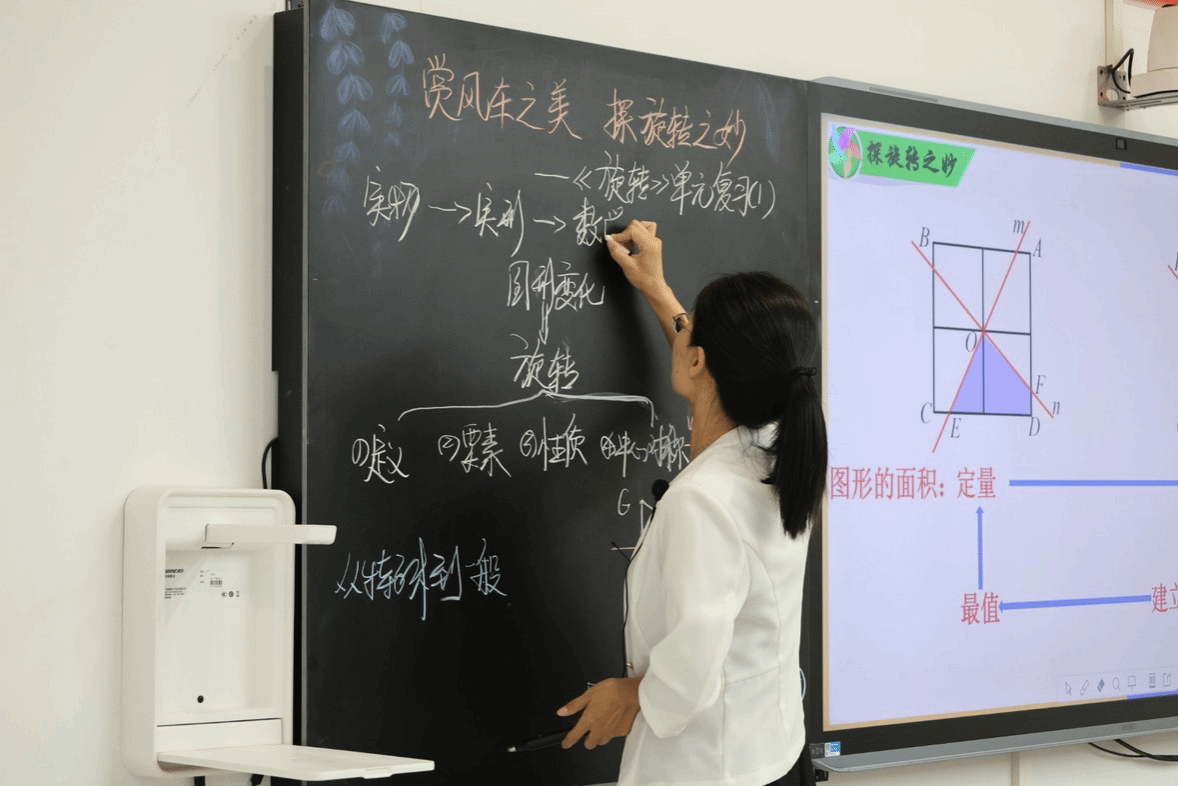 赏风车之美 探旋转之妙
—《旋转》单元复习(1)
实物→实形→数
图形变化
旋转
①定义 ②要素 ③性质 ④中心对称
G
从特殊到一般
探旋转之妙
B m A
O
F
C E D n
图形的面积：定量
最值 建立